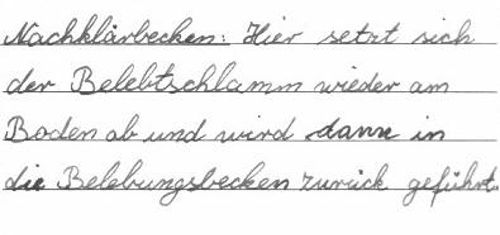 Nachklärbecken: Hier setzt sich
der Belebtschlamm wieder am
Boden ab und wird dann in
die Belebungsbecken zurück geführt.